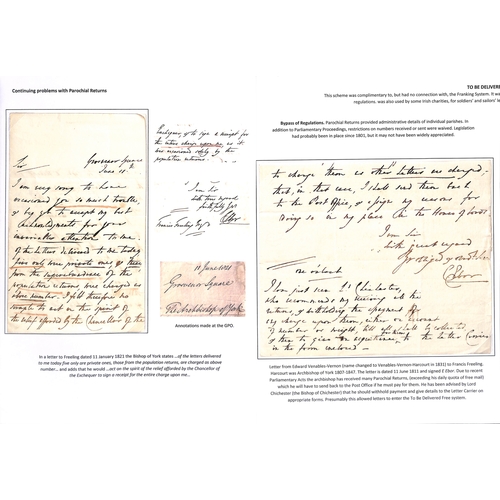 Continuing problems with Parochial Returns
TO BE DELIVERE
This scheme was complimentary to, but had no connection with, the Franking System. It we
regulations. was also used by some Irish charities, for soldiers' and sailors' le
Bypass of Regulations. Parochial Returns provided administrative details of individual parishes. In
addition to Parliamentary Proceedings, restrictions on numbers received or sent were waived. Legislation
had probably been in place since 1801, but it may not have been widely appreciated.
Grosvenor Square
June 11th
Sir
I am very sorry to have
occasioned you so much trouble,
& beg you to accept my best
acknowledgments for your
attention to me.
Of the letters delivered to me today
five only are private ones, & those
from the
population returns are charged as
above number. I shall therefore
act in the spirit of
the relief afforded by the Chancellor of the
Exchequer, & to sign a receipt for
the entire charge upon me, as it
was occasioned solely by the
population returns.
I am Sir
Francis Freeling Esqr
EEbor
11 June 1811
Grosvenor Square
The Archbishop of York
Annotations made at the GPO.
In a letter to Freeling dated 11 January 1821 the Bishop of York states ...of the letters delivered
to me today five only are private ones, those from the population returns, are charged as above
number... and adds that he would ...act on the spirit of the relief afforded by the Chancellor of
the Exchequer to sign a receipt for the entire charge upon me...
to charge them as other letters are charged;
that, in that case, I shall send them back
to the Post Office, & assign my reasons for
doing so in my place in the House of Lords
I am Sir
with great regard
EEbor
I have just seen Ld Chichester,
who recommends my receiving all the
returns, & withholding the payment for
any charge upon them, either on account
of number or weight,
in the form enclosed
Letter from Edward Venables-Vernon (name changed to Venables-Vernon-Harcourt in 1831) to Francis Freeling.
Harcourt was Archbishop of York 1807-1847. The letter is dated 11 June 1811 and signed E Ebor. Due to recent
Parliamentary Acts the archbishop has received many Parochial Returns, (exceeding his daily quota of free mail)
which he will have to send back to the Post Office if he must pay for them. He has been advised by Lord
Chichester (the Bishop of Chichester) that he should withhold payment and give details to the Letter Carrier on
appropriate forms. Presumably this allowed letters to enter the To Be Delivered Free system.